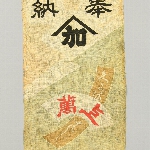 奉納
加
萬上